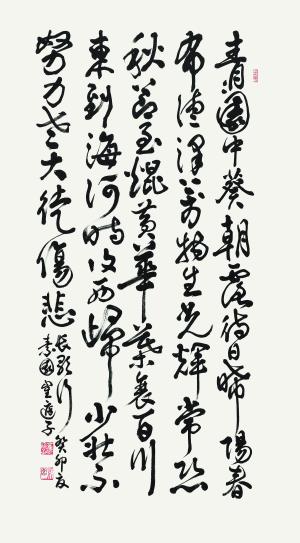 青青園中葵朝露待日晞陽春
布德澤萬物生光輝常恐
秋節至焜黃華葉衰百川
東到海何時復西歸少壯不
努力老大徒傷悲
長歌行癸卯夏